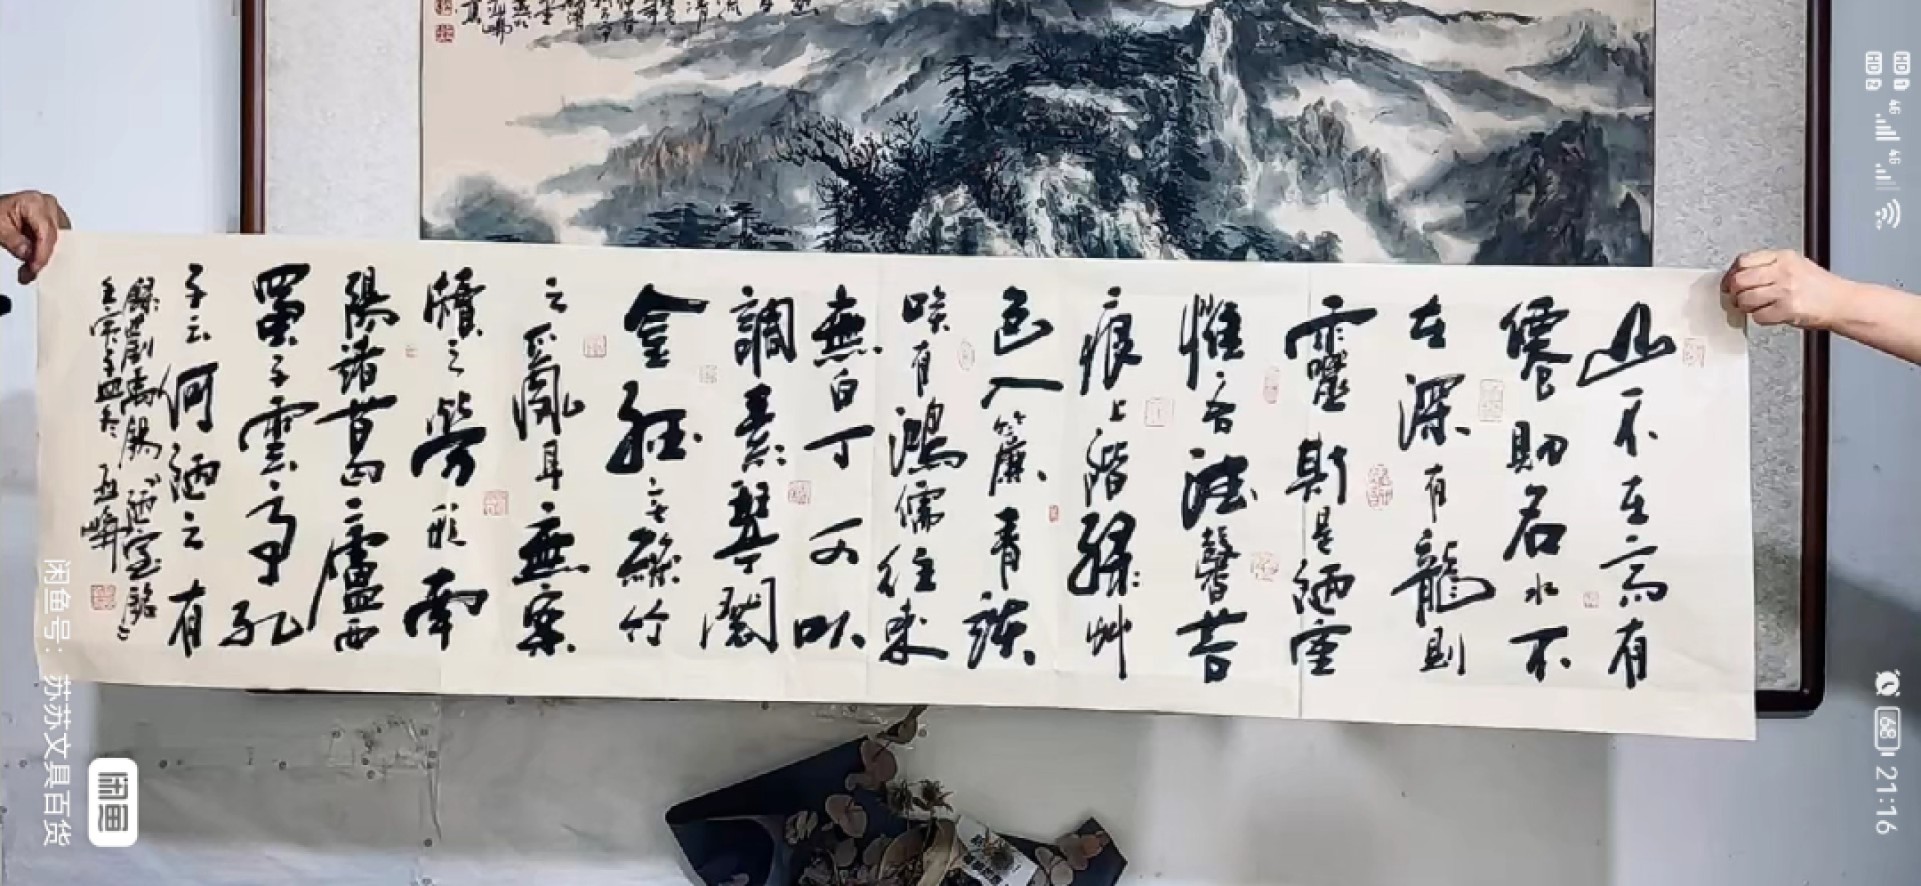 山不在高有
僊則名水不
在深有龍則
靈斯是陋室
惟吾德馨苔
痕上階綠艸
色入簾青談
咲有鴻儒往來
無白丁可以
調素琴閱
金經无絲竹
之亂耳無案
牘之勞形南
陽諸葛廬西
蜀子雲亭孔
子云何陋之有
劉禹錫陋室銘
闲鱼号：苏苏文具百货
闲鱼
HD 1
HD 2
4G
4G
68
21:16